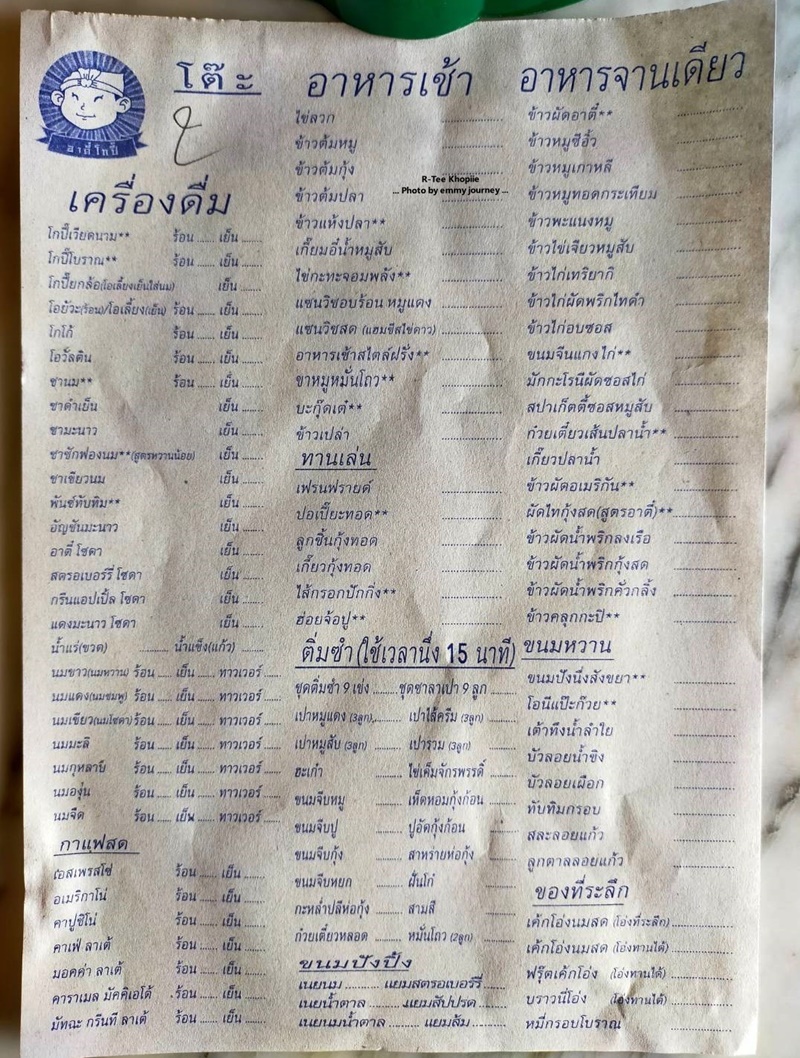 อาตี๋โกปี๊
โต๊ะ
เครื่องดื่ม
โกปี๊เวียดนาม** ร้อน ...... เย็น .......
โกปี๊โบราณ** ร้อน ...... เย็น .......
โกปี๊ยกล้อ(โอเลี้ยงเย็นใส่นม) เย็น .......
โอยัวะ(ร้อน)/โอเลี้ยง(เย็น) ร้อน ...... เย็น .......
โกโก้ ร้อน ...... เย็น .......
โอวัลติน ร้อน ...... เย็น .......
ชานม** ร้อน ...... เย็น .......
ชาดำเย็น เย็น .......
ชามะนาว เย็น .......
ชาชักฟองนม**(สูตรหวานน้อย) เย็น .......
ชาเขียวนม เย็น .......
พันช์ทับทิม** เย็น .......
อัญชันมะนาว เย็น .......
อาตี๋ โซดา เย็น .......
สตรอเบอร์รี่ โซดา เย็น .......
กรีนแอปเปิ้ล โซดา เย็น .......
แดงมะนาว โซดา เย็น .......
น้ำแร่(ขวด) ......... น้ำแข็ง(แก้ว) .......
นมขาว(นมหวาน) ร้อน ..... เย็น ...... ทาวเวอร์ ......
นมแดง(นมชมพู) ร้อน ..... เย็น ...... ทาวเวอร์ ......
นมเขียว(นมโซดา) ร้อน ..... เย็น ...... ทาวเวอร์ ......
นมมะลิ ร้อน ..... เย็น ...... ทาวเวอร์ ......
นมกุหลาบ ร้อน ..... เย็น ...... ทาวเวอร์ ......
นมองุ่น ร้อน ..... เย็น ...... ทาวเวอร์ ......
นมจืด ร้อน ..... เย็น ...... ทาวเวอร์ ......
กาแฟสด
เอสเพรสโซ่ ร้อน ...... เย็น .......
อเมริกาโน่ ร้อน ...... เย็น .......
คาปูชิโน่ ร้อน ...... เย็น .......
คาเฟ่ ลาเต้ ร้อน ...... เย็น .......
มอคค่า ลาเต้ ร้อน ...... เย็น .......
คาราเมล มัคคิเอโต้ ร้อน ...... เย็น .......
มัทฉะ กรีนที ลาเต้ ร้อน ...... เย็น .......
อาหารเช้า
ไข่ลวก
ข้าวต้มหมู
ข้าวต้มกุ้ง
ข้าวต้มปลา
ข้าวแห้งปลา**
เกี๊ยมอี๋น้ำหมูสับ
ไข่กะทะจอมพลัง**
แซนวิชอบร้อน หมูแดง
แซนวิชสด (แฮมชีสไข่ดาว)
อาหารเช้าสไตล์ฝรั่ง**
ขาหมูหมั่นโถว**
บะกุ๊ดเต๋**
ข้าวเปล่า
ทานเล่น
เฟรนฟรายด์
ปอเปี๊ยะทอด**
ลูกชิ้นกุ้งทอด
เกี๊ยวกุ้งทอด
ไส้กรอกปักกิ่ง**
ฮ่อยจ้อปู**
ติ่มซำ (ใช้เวลานึ่ง 15 นาที)
ชุดติ่มซำ 9 เข่ง ....... ชุดซาลาเปา 9 ลูก .......
เปาหมูแดง (3ลูก) ....... เปาไส้ครีม (3ลูก) .......
เปาหมูสับ (3ลูก) ....... เปารวม (3ลูก) .......
ฮะเก๋า ....... ไข่เค็มจักรพรรดิ์ .......
ขนมจีบหมู ....... เห็ดหอมกุ้งก้อน .......
ขนมจีบปู ....... ปูอัดกุ้งก้อน .......
ขนมจีบกุ้ง ....... สาหร่ายห่อกุ้ง .......
ขนมจีบหยก ....... ฝั่นโก๋ .......
กะหล่ำปลีห่อกุ้ง ....... สามสี .......
ก๋วยเตี๋ยวหลอด ....... หมั่นโถว (2ลูก) .......
ขนมปังปิ้ง
เนยนม ......... แยมสตรอเบอร์รี่ .......
เนยน้ำตาล ......... แยมสัปปรด .......
เนยนมน้ำตาล ......... แยมส้ม .......
อาหารจานเดียว
ข้าวผัดอาตี๋**
ข้าวหมูซีอิ้ว
ข้าวหมูเกาหลี
ข้าวหมูทอดกระเทียม
ข้าวพะแนงหมู
ข้าวไข่เจียวหมูสับ
ข้าวไก่เทริยากิ
ข้าวไก่ผัดพริกไทดำ
ข้าวไก่อบซอส
ขนมจีนแกงไก่**
มักกะโรนีผัดซอสไก่
สปาเก็ตตี้ซอสหมูสับ
ก๋วยเตี๋ยวเส้นปลาน้ำ**
เกี๊ยวปลาน้ำ
ข้าวผัดอเมริกัน**
ผัดไทกุ้งสด(สูตรอาตี๋)**
ข้าวผัดน้ำพริกลงเรือ
ข้าวผัดน้ำพริกกุ้งสด
ข้าวผัดน้ำพริกคั่วกลิ้ง
ข้าวคลุกกะปิ**
ขนมหวาน
ขนมปังนึ่งสังขยา**
โอนีแป๊ะก๊วย**
เต้าทึงน้ำลำใย
บัวลอยน้ำขิง
บัวลอยเผือก
ทับทิมกรอบ
สละลอยแก้ว
ลูกตาลลอยแก้ว
ของที่ระลึก
เค้กโอ่งนมสด (โอ่งที่ระลึก)
เค้กโอ่งนมสด (โอ่งทานได้)
ฟรุ๊ตเค้กโอ่ง (โอ่งทานได้)
บราวนี่โอ่ง (โอ่งทานได้)
หมี่กรอบโบราณ
R-Tee Khopiie
... Photo by emmy journey ...